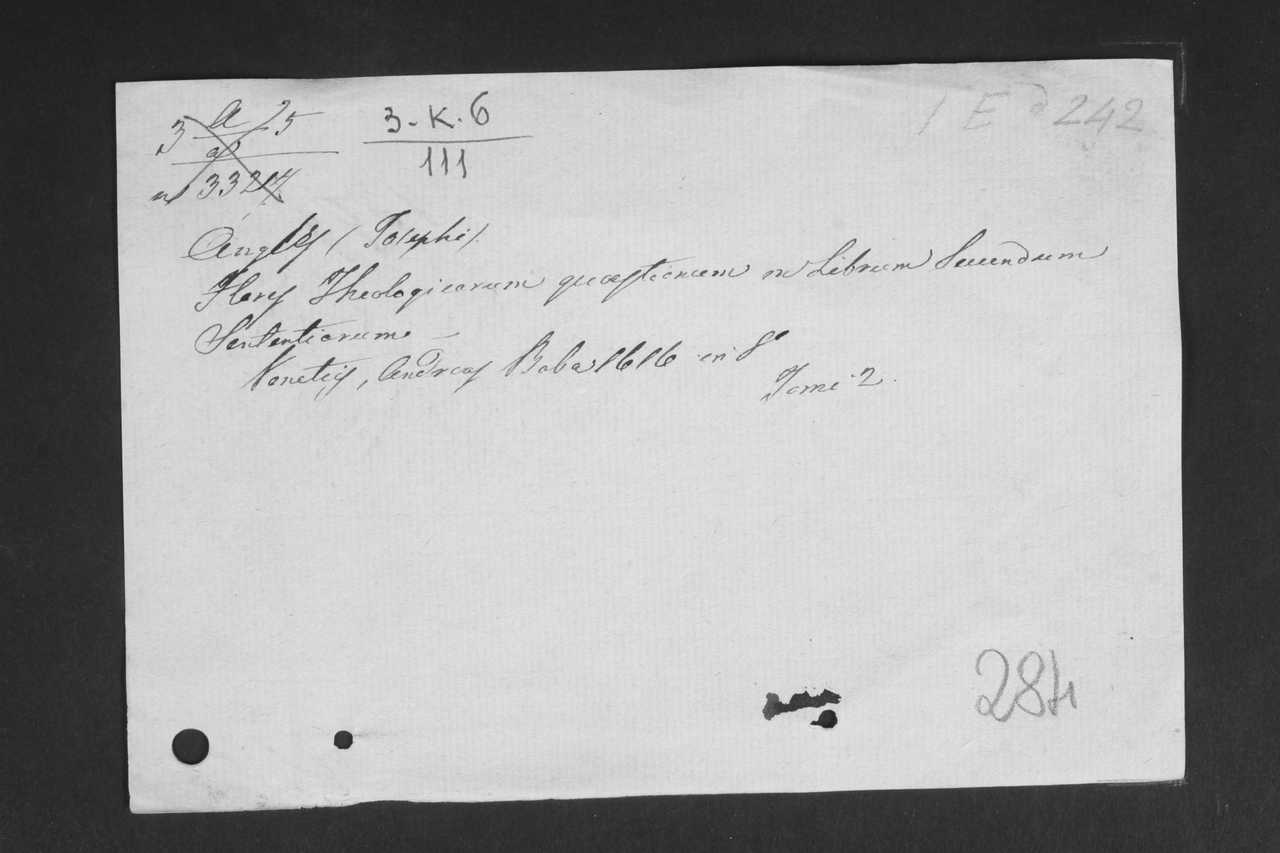 3 A 25
3-K.6
111
1 E d 242
nº 33217
Anglés (Josephi).
Flores Theologicarum quæstionum in Librum Secundum
Sententiarum
Venetiis, Andreas Baba 1616 in 8º
Tome 2.
284